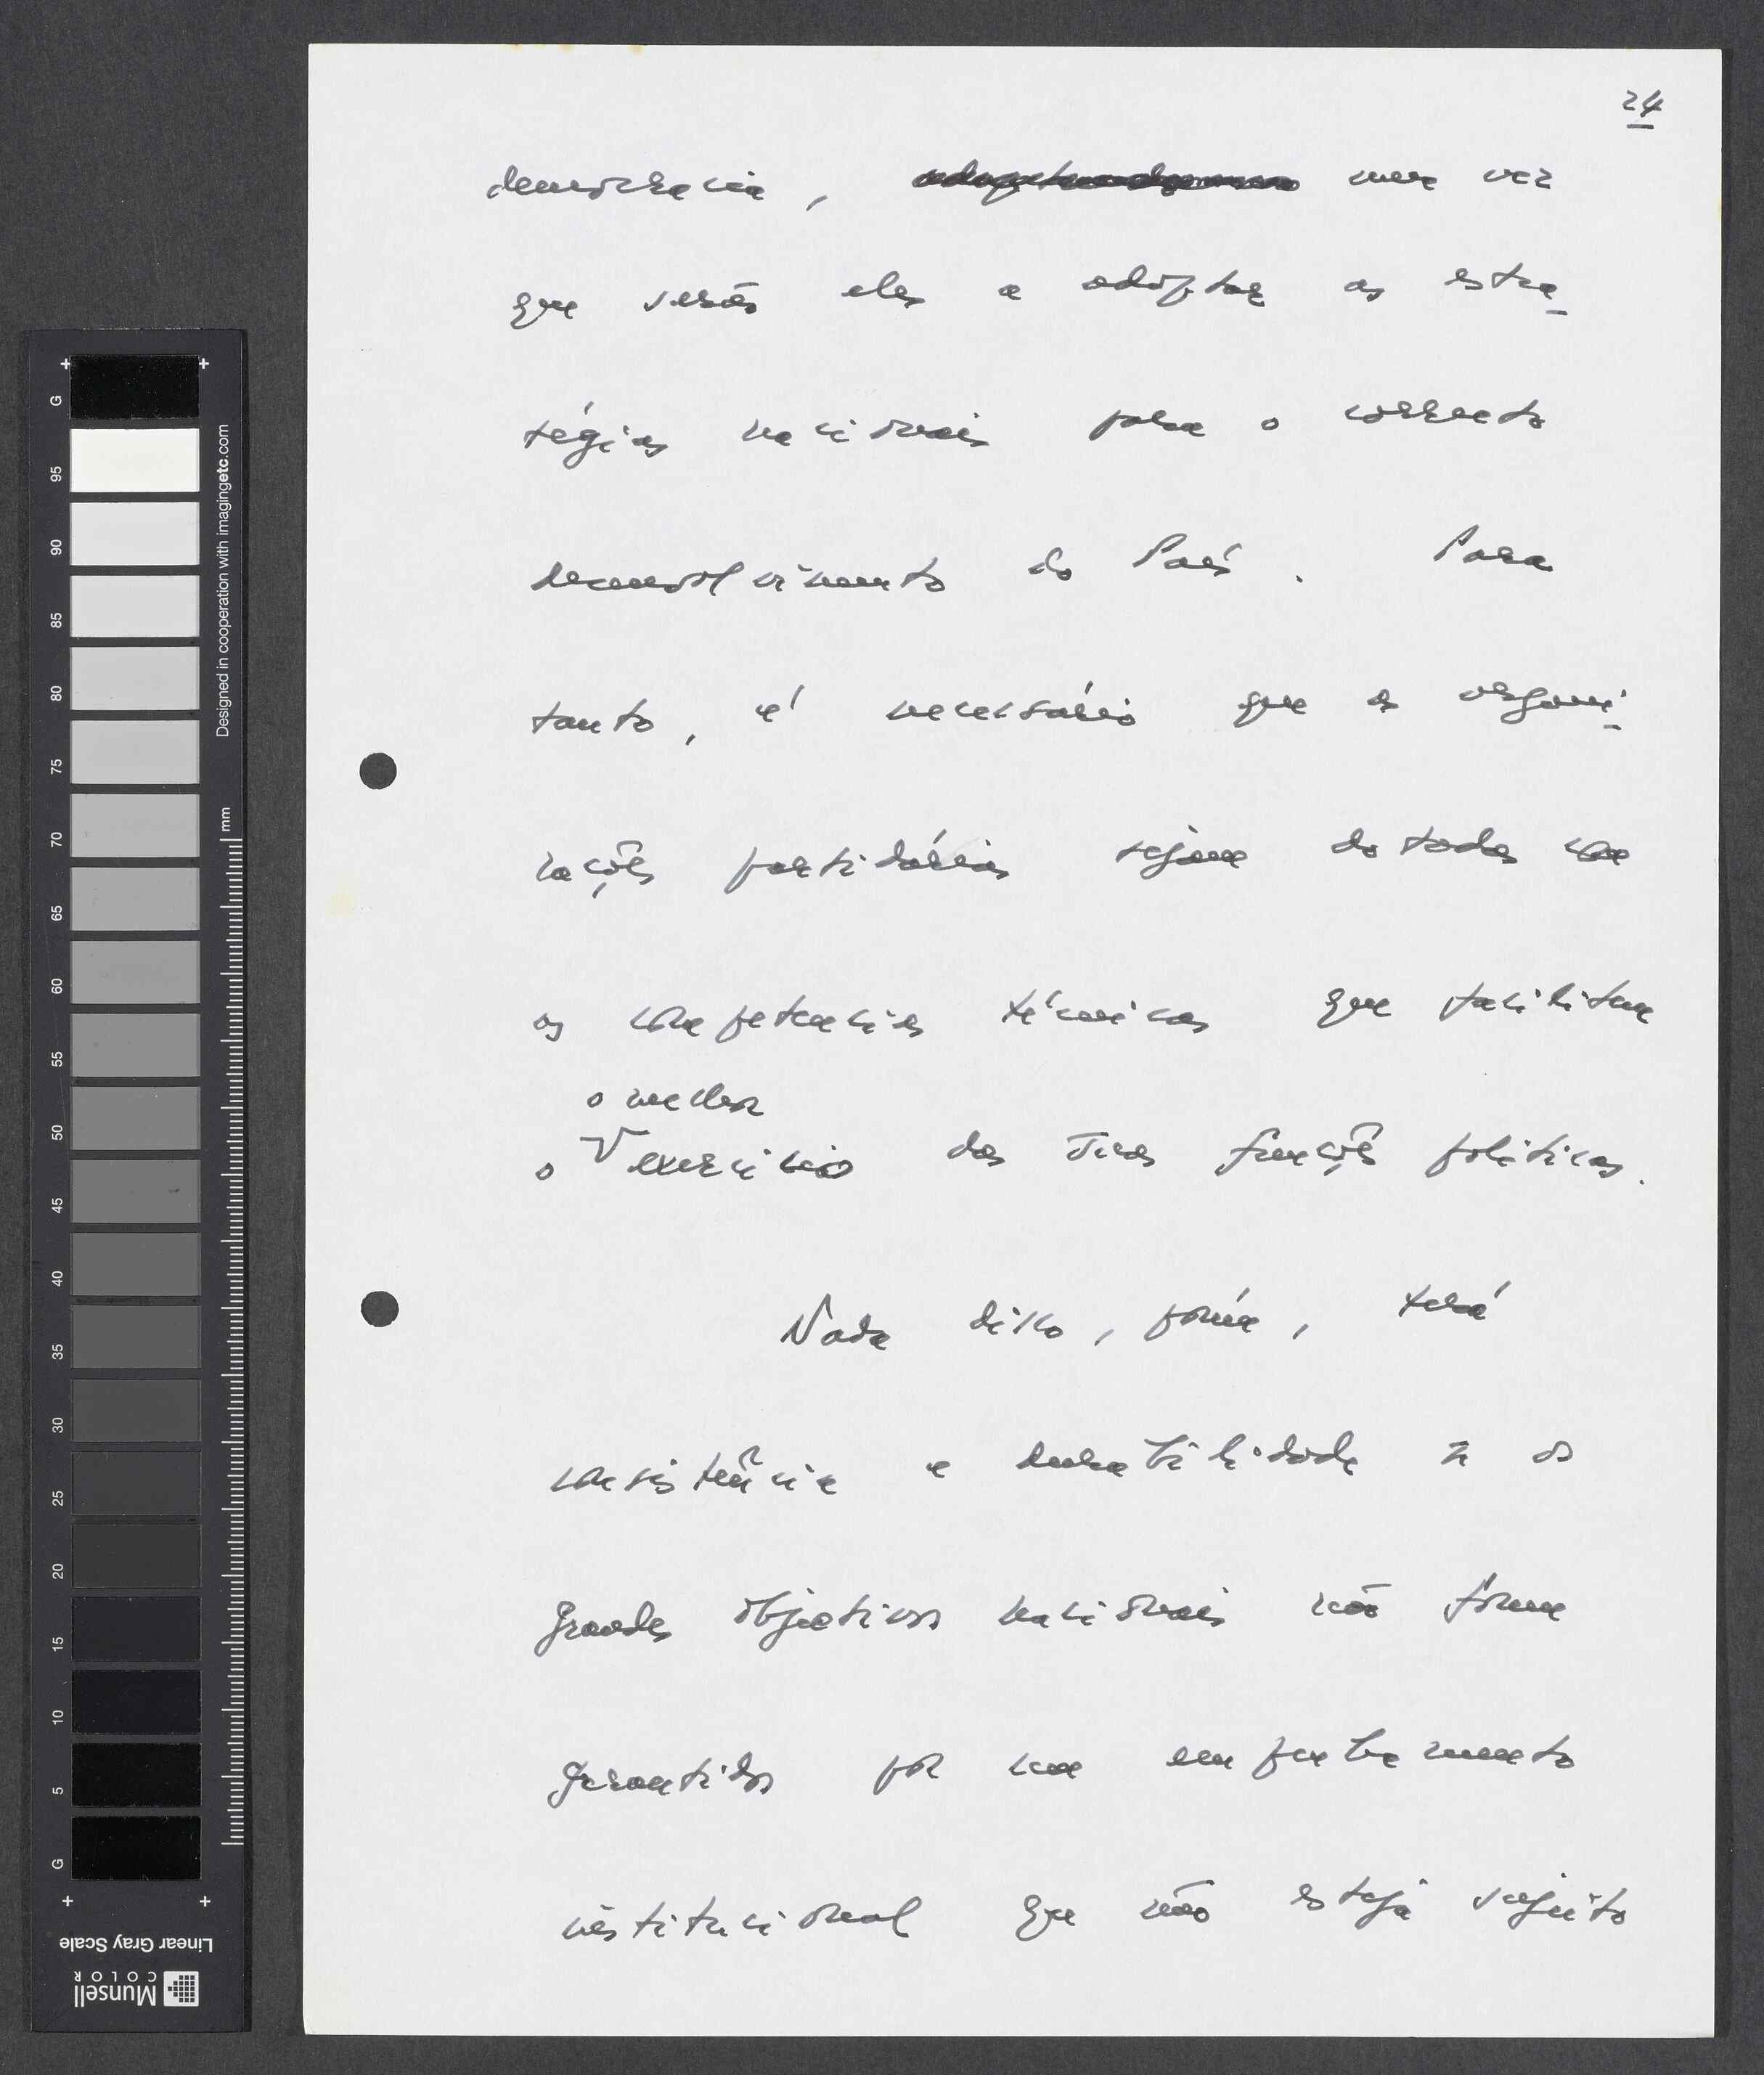 24
democracia, uma vez
que serão eles a adoptar as estra
tégias nacionais para o correcto
desenvolvimento do País. Para
tanto, é necessário que as organi
zações partidárias sejam dotadas com
as competencias técnicas que facilitam
o melhor
o V exercício das suas funções políticas.
Nada disto, porém, terá
consistência e durabilidade se os
grandes objectivos nacionais não forem
garantidos por um enquadramento
institucional que não esteja sujeito
G
95
90
85
80
75
70
65
60
55
50
45
40
35
30
25
20
15
10
5
G
mm
Designed in cooperation with imagingetc.com
Linear Gray Scale
Munsell
COLOR